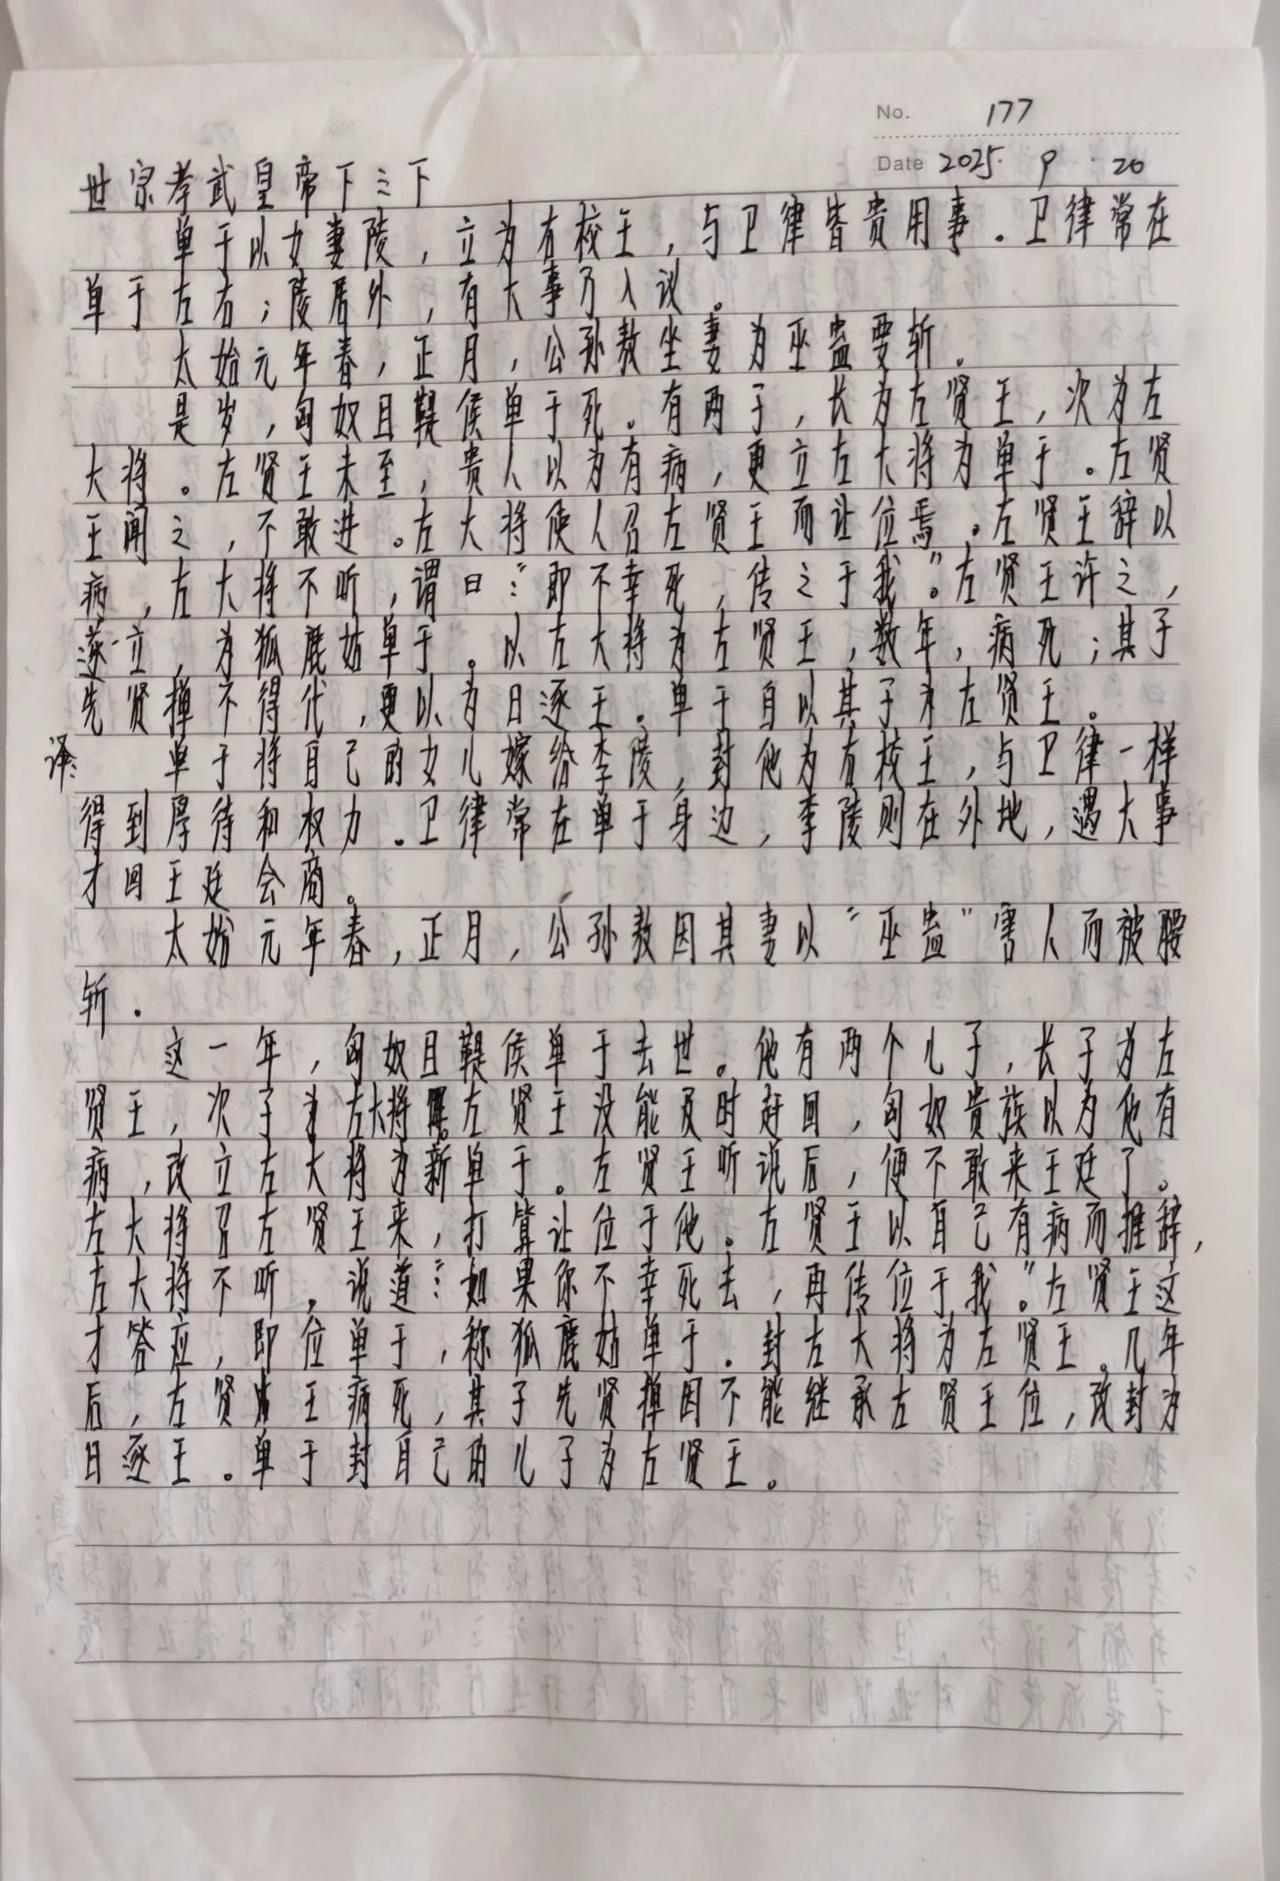 No. 177
Date 2025. 9. 20
世宗孝武皇帝下之下
单于以女妻陵，立为右校王，与卫律皆贵用事。卫律常在
单于左右；陵居外，有大事乃入议。
太始元年春，正月，公孙敖坐妻为巫蛊要斩。
是岁，匈奴且鞮侯单于死。有两子，长为左贤王，次为左
大将。左贤王未至，贵人以为有病，更立左大将为单于。左贤
王闻之，不敢进。左大将使人召左贤王而让位焉。左贤王辞以
病，左大将不听，谓曰：“即不幸死，传之于我。”左贤王许之，
遂立，为狐鹿姑单于。以左大将为左贤王，数年，病死；其子
先贤掸不得代，更以为日逐王。单于自以其子为左贤王。
译：单于将自己的女儿嫁给李陵，封他为右校王，与卫律一样
得到厚待和权力。卫律常在单于身边，李陵则在外地，遇大事
才回王廷会商。
太始元年春，正月，公孙敖因其妻以“巫蛊”害人而被腰
斩。
这一年，匈奴且鞮侯单于去世。他有两个儿子，长子为左
贤王，次子为左大将左贤王没能及时赶回，匈奴贵族以为他有
病，改立左大将为新单于。左贤王听说后，便不敢来王廷了。
左大将召左贤王来，打算让位于他。左贤王以自己有病而推辞，
左大将不听。说道：“如果你不幸死去，再传位于我。”左贤王这
才答应，即位单于，称狐鹿姑单于。封左大将为左贤王。几年
后，左贤王病死，其子先贤掸因不能继承左贤王位，改封为
日逐王。单于封自己的儿子为左贤王。